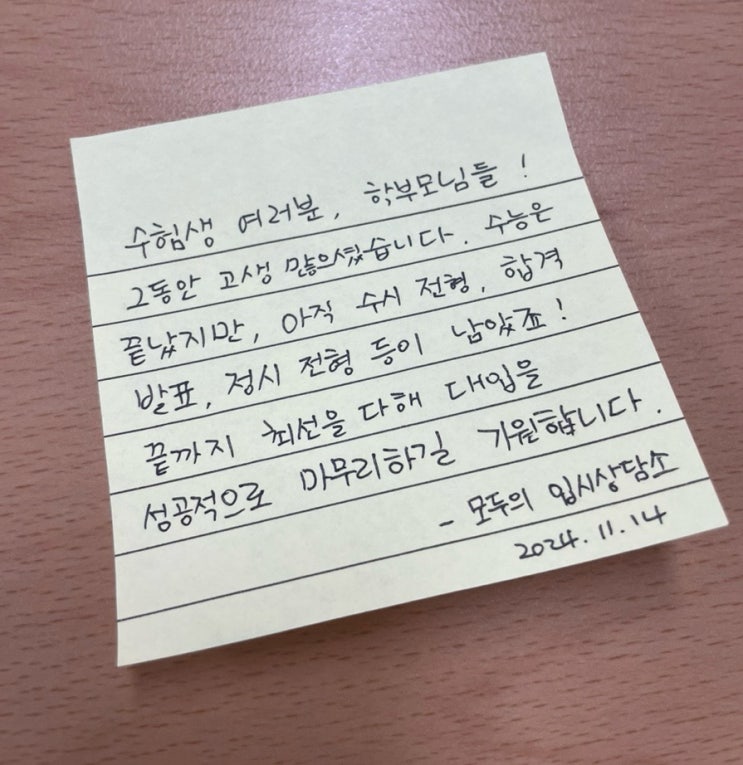 수험생 여러분, 학부모님들!
그동안 고생 많으셨습니다. 수능은
끝났지만, 아직 수시 전형, 합격
발표, 정시 전형 등이 남았죠!
끝까지 최선을 다해 대입을
성공적으로 마무리하길 기원합니다.
- 모두의 입시상담소
2024.11.14